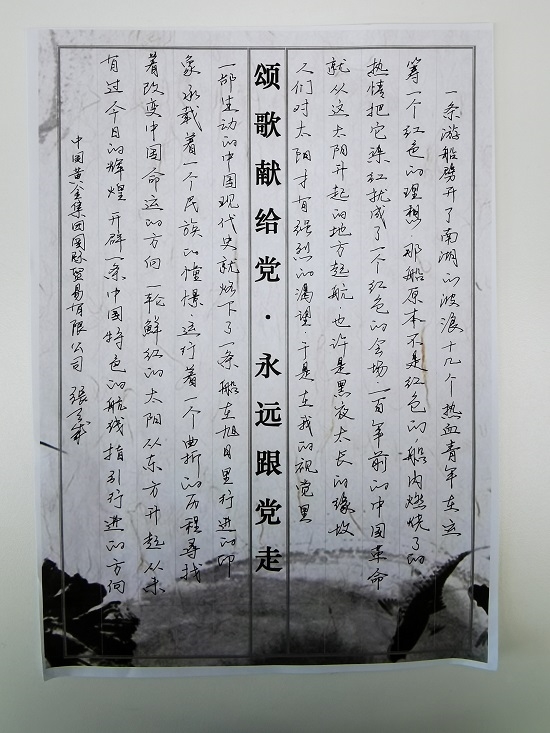 一条游船劈开了南湖的波浪十几个热血青年在这
筹一个红色的理想 那船原本不是红色的，船内燃烧了的
热情把它染红就成了一个红色的会场 一百年前的中国革命
就从这太阳升起的地方起航 也许是黑夜太长的缘故
人们对太阳才有强烈的渴望 于是在我的视觉里
颂歌献给党·永远跟党走
一部生动的中国现代史就炫下了一条船在旭日里行进的印
象承载着一个民族的憧憬 运行着一个曲折的历程寻找
着改变中国命运的方向 一轮鲜红的太阳从东方升起从未
有过今日的辉煌 开辟一条中国特色的航线指引行进的方向
中国黄金集团国际贸易有限公司 张